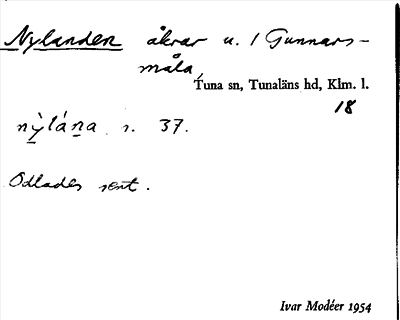 Nylanden åkrar u. 1 Gunnars-
måla,
Tuna sn, Tunaläns hd, Klm. l.
18
nỳlána s. 37.
Odlades sent.
Ivar Modéer 1954